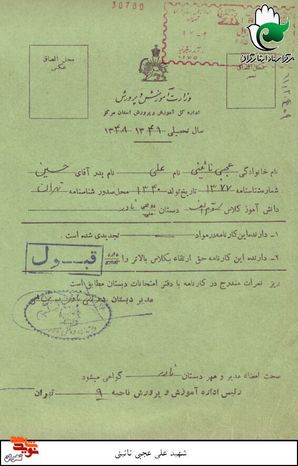 30780
محل الصاق
عکس
محل الصاق
وزارت آموزش و پرورش
اداره کل آموزش و پرورش استان مرکز
سال تحصیلی ۱۳۴۹ ۱۳۴۸
نام خانوادگی عجبی نائینی نام علی نام پدر آقای حسین
شماره شناسنامه ۱۳۷۷ تاریخ تولد ۱۳۳۰ محل صدور شناسنامه تهران
دانش آموز کلاس دبستان نادر
۱- دارنده این کارنامه در مواد تجدیدی شده است.
۲- دارنده این کارنامه حق ارتقاء بکلاس بالاتر را دارد
قبول
ریز نمرات مندرج در کارنامه با دفتر امتحانات دبستان مطابق است
مدیر دبستان
صحت امضاء مدیر و مهر دبستان نادر گواهی میشود
رئیس اداره آموزش و پرورش ناحیه ۹ تهران
شهید علی عجبی نائینی